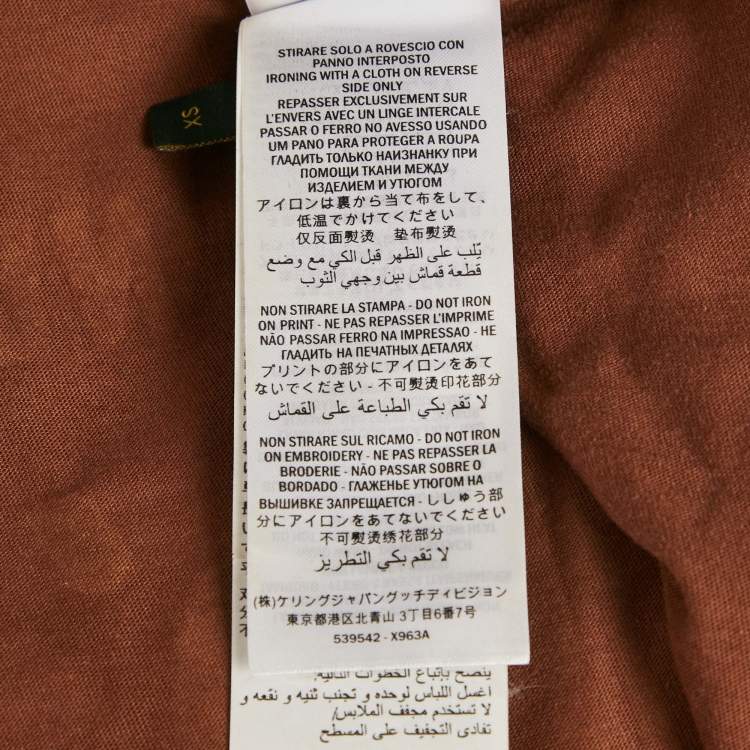 XS
STIRARE SOLO A ROVESCIO CON
PANNO INTERPOSTO
IRONING WITH A CLOTH ON REVERSE
SIDE ONLY
REPASSER EXCLUSIVEMENT SUR
L'ENVERS AVEC UN LINGE INTERCALE
PASSAR O FERRO NO AVESSO USANDO
UM PANO PARA PROTEGER A ROUPA
ГЛАДИТЬ ТОЛЬКО НАИЗНАНКУ ПРИ
ПОМОЩИ ТКАНИ МЕЖДУ
ИЗДЕЛИЕМ И УТЮГОМ
アイロンは裏から当て布をして、
低温でかけてください
仅反面熨烫 垫布熨烫
يّلب على الظهر قبل الكي مع وضع
قطعة قماش بين وجهي الثوب
NON STIRARE LA STAMPA - DO NOT IRON
ON PRINT - NE PAS REPASSER L'IMPRIME
NÃO PASSAR FERRO NA IMPRESSAO - НЕ
ГЛАДИТЬ НА ПЕЧАТНЫХ ДЕТАЛЯХ
プリントの部分にアイロンをあて
ないでください - 不可熨烫印花部分
لا تقم بكي الطباعة على القماش
NON STIRARE SUL RICAMO - DO NOT IRON
ON EMBROIDERY - NE PAS REPASSER LA
BRODERIE - NÃO PASSAR SOBRE O
BORDADO - ГЛАЖЕНЬЕ УТЮГОМ НА
ВЫШИВКЕ ЗАПРЕЩАЕТСЯ - ししゅう部
分にアイロンをあてないでください
不可熨烫绣花部分
لا تقم بكي التطريز
(株)ケリングジャパングッチディビジョン
東京都港区北青山 3丁目6番7号
539542 - X963A
ينصح بإتباع الخطوات التالية:
اغسل اللباس لوحده و تجنب ثنيه و نقعه و
لا تستخدم مجفف الملابس/
تفادى التجفيف على المسطح